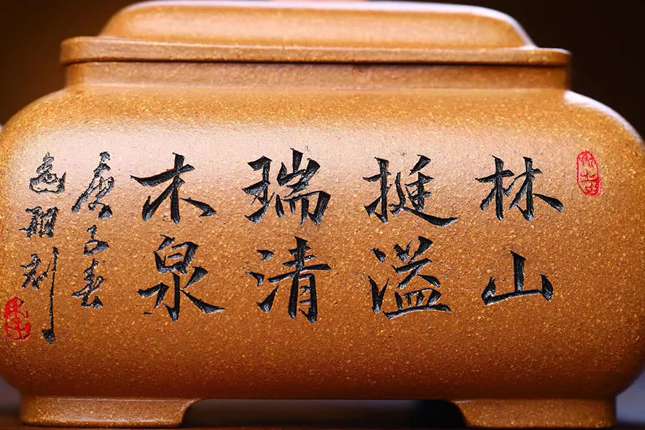 林挺瑞木
山溢清泉
庚子春
刻